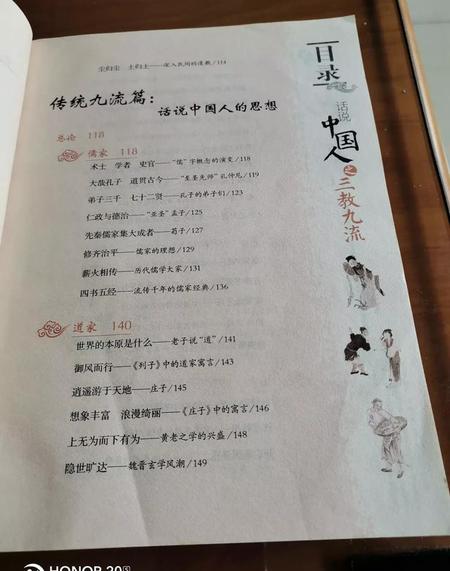 尘归尘 土归土——深入民间的道教/114
传统九流篇：
话说中国人的思想
总论 118
儒家 118
术士 学者 史官——“儒”字概念的演变/118
大哉孔子 道贯古今——“至圣先师”孔仲尼/119
弟子三千 七十二贤——孔子的弟子们/123
仁政与德治——“亚圣”孟子/125
先秦儒家集大成者——荀子/127
修齐治平——儒家的理想/129
薪火相传——历代儒学大家/131
四书五经——流传千年的儒家经典/136
道家 140
世界的本原是什么——老子说“道”/141
御风而行——《列子》中的道家寓言/143
逍遥游于天地——庄子/145
想象丰富 浪漫绮丽——《庄子》中的寓言/146
上无为而下有为——黄老之学的兴盛/148
隐世旷达——魏晋玄学风潮/149
目录
话说
中国人
之三教九流
HONOR 20S